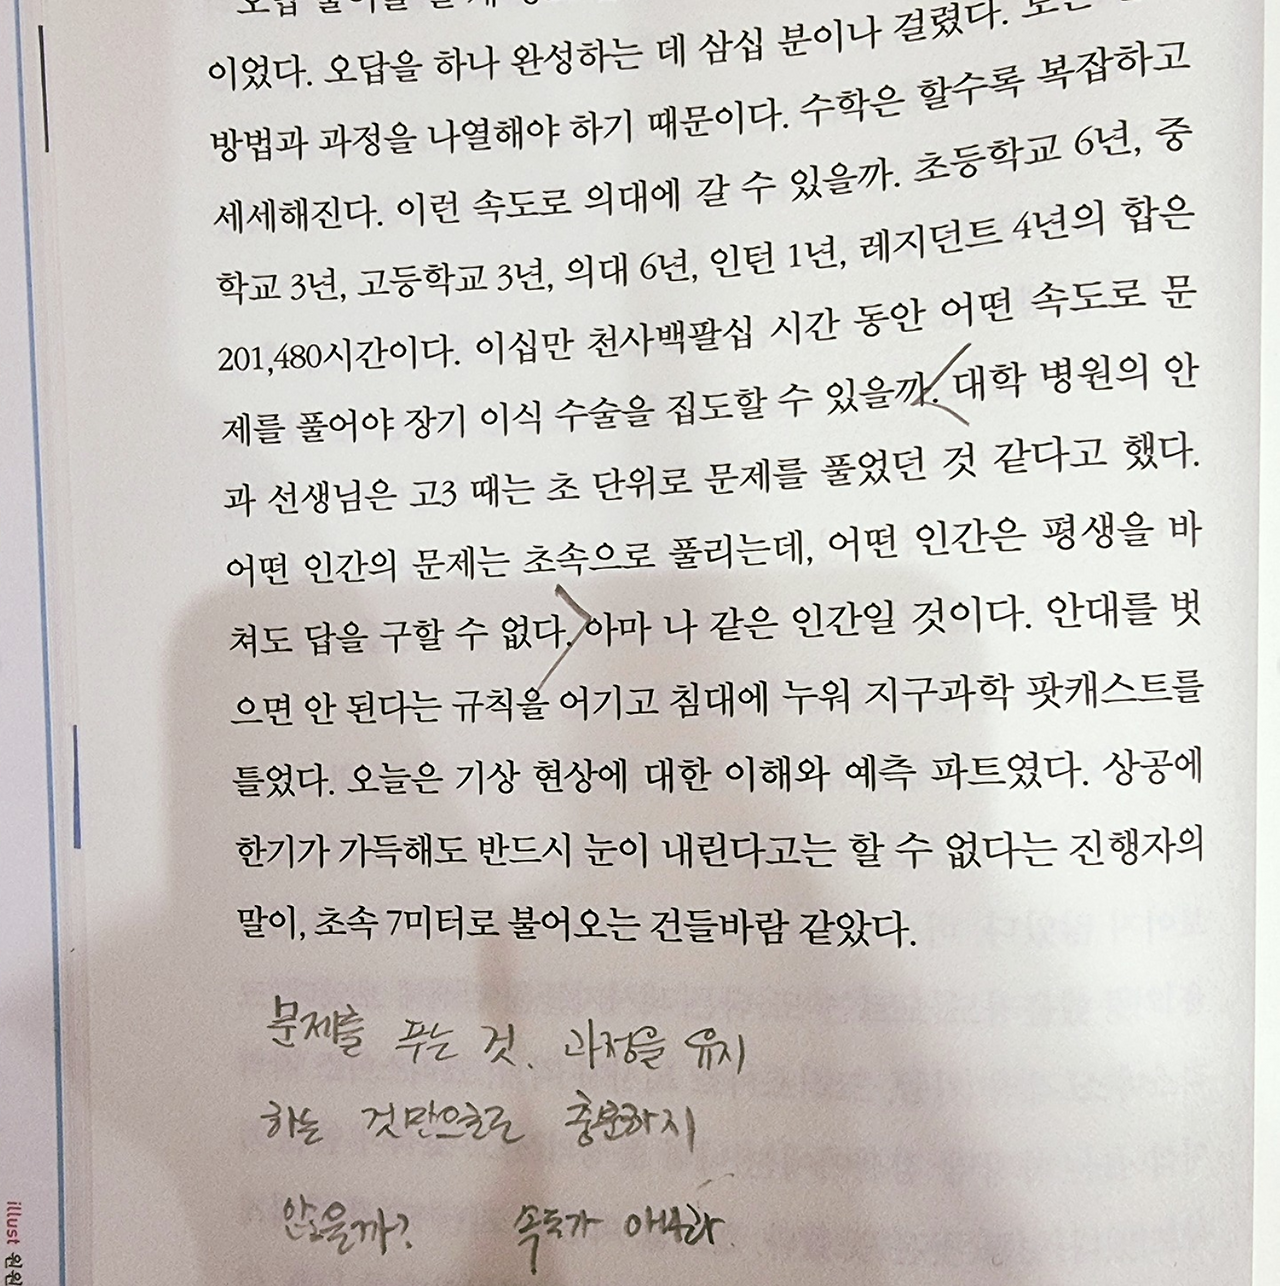 오답 풀이를
이었다. 오답을 하나 완성하는 데 삼십 분이나 걸렸다. 모든
방법과 과정을 나열해야 하기 때문이다. 수학은 할수록 복잡하고
세세해진다. 이런 속도로 의대에 갈 수 있을까. 초등학교 6년, 중
학교 3년, 고등학교 3년, 의대 6년, 인턴 1년, 레지던트 4년의 합은
201,480시간이다. 이십만 천사백팔십 시간 동안 어떤 속도로 문
제를 풀어야 장기 이식 수술을 집도할 수 있을까. 대학 병원의 안
과 선생님은 고3 때는 초 단위로 문제를 풀었던 것 같다고 했다.
어떤 인간의 문제는 초속으로 풀리는데, 어떤 인간은 평생을 바
쳐도 답을 구할 수 없다. 아마 나 같은 인간일 것이다. 안대를 벗
으면 안 된다는 규칙을 어기고 침대에 누워 지구과학 팟캐스트를
틀었다. 오늘은 기상 현상에 대한 이해와 예측 파트였다. 상공에
한기가 가득해도 반드시 눈이 내린다고는 할 수 없다는 진행자의
말이, 초속 7미터로 불어오는 건들바람 같았다.
문제를 푸는 것. 과정을 유지
하는 것만으로 충분하지
않을까? 속도가 아니라.
illust 원원